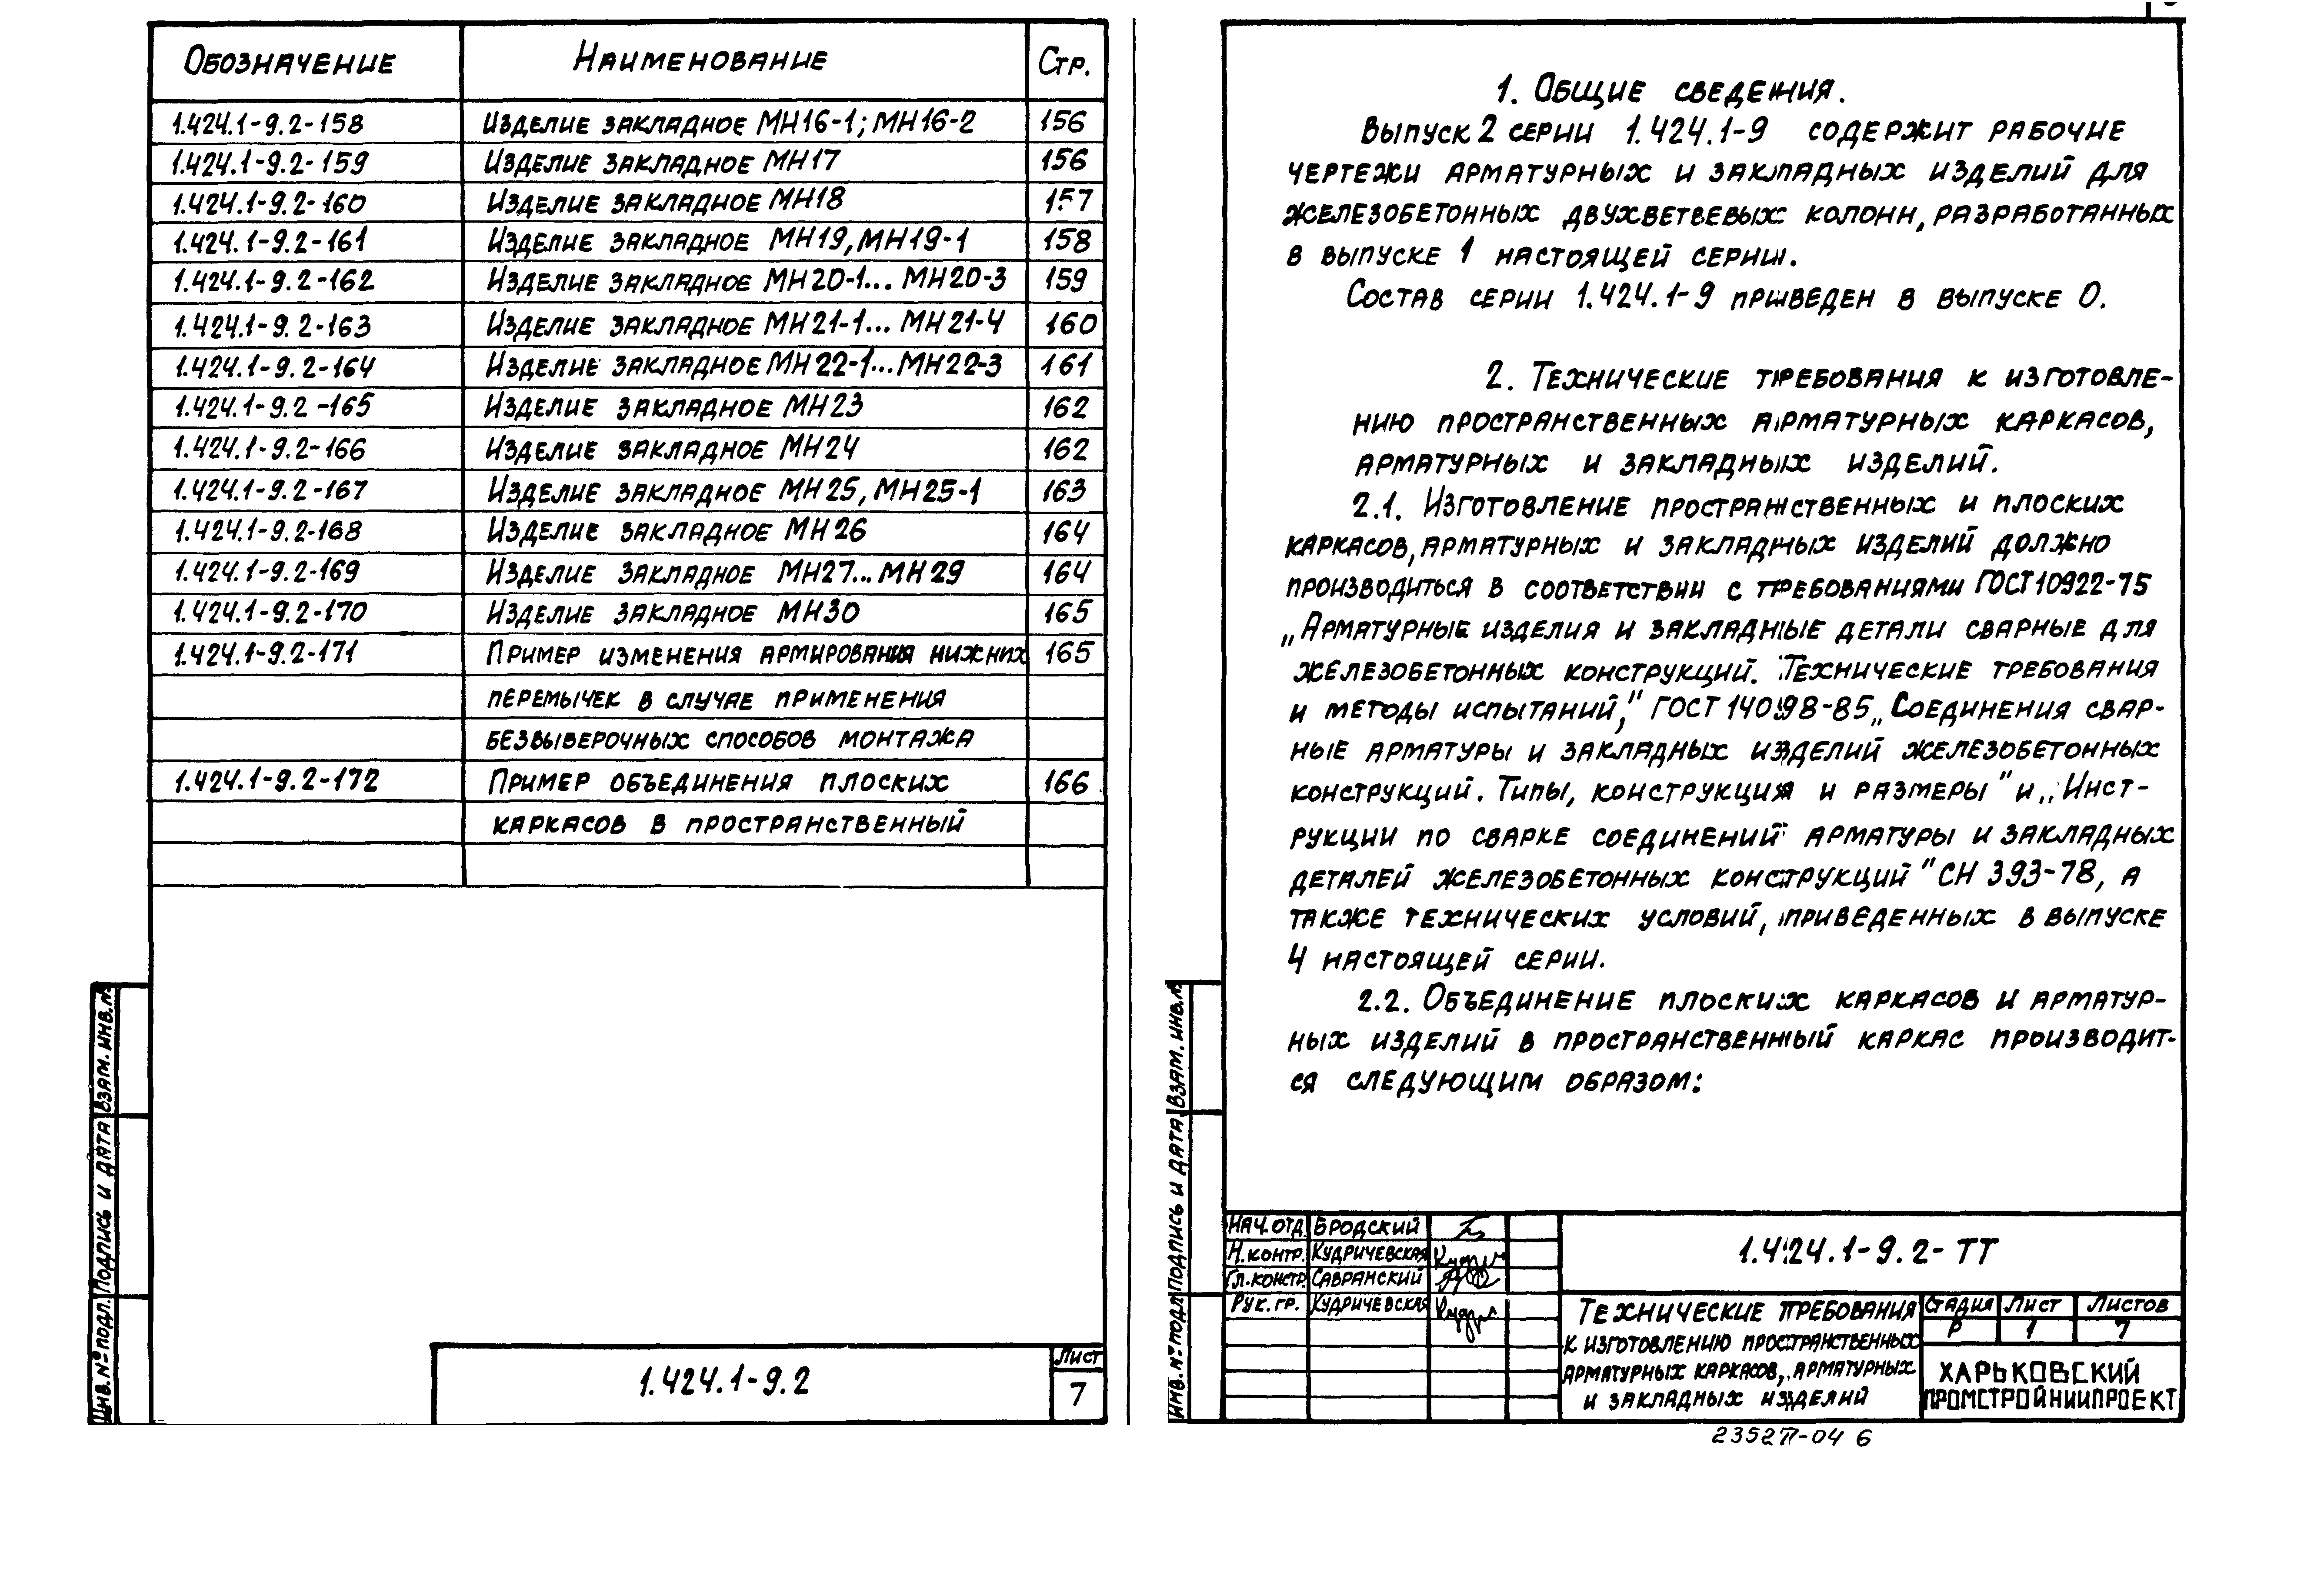 Обозначение Наименование Стр.
1.424.1-9.2-158 Изделие закладное МН16-1; МН16-2 156
1.424.1-9.2-159 Изделие закладное МН17 156
1.424.1-9.2-160 Изделие закладное МН18 157
1.424.1-9.2-161 Изделие закладное МН19, МН19-1 158
1.424.1-9.2-162 Изделие закладное МН20-1... МН20-3 159
1.424.1-9.2-163 Изделие закладное МН21-1... МН21-4 160
1.424.1-9.2-164 Изделие закладное МН22-1...МН22-3 161
1.424.1-9.2-165 Изделие закладное МН23 162
1.424.1-9.2-166 Изделие закладное МН24 162
1.424.1-9.2-167 Изделие закладное МН25, МН25-1 163
1.424.1-9.2-168 Изделие закладное МН26 164
1.424.1-9.2-169 Изделие закладное МН27...МН29 164
1.424.1-9.2-170 Изделие закладное МН30 165
1.424.1-9.2-171 Пример изменения армирования нижних 165
перемычек в случае применения
безвыверочных способов монтажа
1.424.1-9.2-172 Пример объединения плоских 166
каркасов в пространственный
Инв.№подл. Подпись и дата Взам.инв.№
1.424.1-9.2
Лист
7
1. Общие сведения.
Выпуск 2 серии 1.424.1-9 содержит рабочие
чертежи арматурных и закладных изделий для
железобетонных двухветвевых колонн, разработанных
в выпуске 1 настоящей серии.
Состав серии 1.424.1-9 приведен в выпуске 0.
2. Технические требования к изготовле-
нию пространственных арматурных каркасов,
арматурных и закладных изделий.
2.1. Изготовление пространственных и плоских
каркасов, арматурных и закладных изделий должно
производиться в соответствии с требованиями ГОСТ 10922-75
„Арматурные изделия и закладные детали сварные для
железобетонных конструкций. Технические требования
и методы испытаний," ГОСТ 14098-85 „Соединения свар-
ные арматуры и закладных изделий железобетонных
конструкций. Типы, конструкция и размеры" и „Инст-
рукции по сварке соединений арматуры и закладных
деталей железобетонных конструкций" СН 393-78, а
также технических условий, приведенных в выпуске
4 настоящей серии.
2.2. Объединение плоских каркасов и арматур-
ных изделий в пространственный каркас производит-
ся следующим образом:
Инв.№подл. Подпись и дата Взам.инв.№
Нач.отд. Бродский
Н.контр. Кудричевская
Гл.констр. Савранский
Рук.гр. Кудричевская
1.424.1-9.2-ТТ
Технические требования
к изготовлению пространственных
арматурных каркасов, арматурных
и закладных изделий
Стадия Лист Листов
Р 1 7
ХАРЬКОВСКИЙ
ПРОМСТРОЙНИИПРОЕКТ
23527-04 6